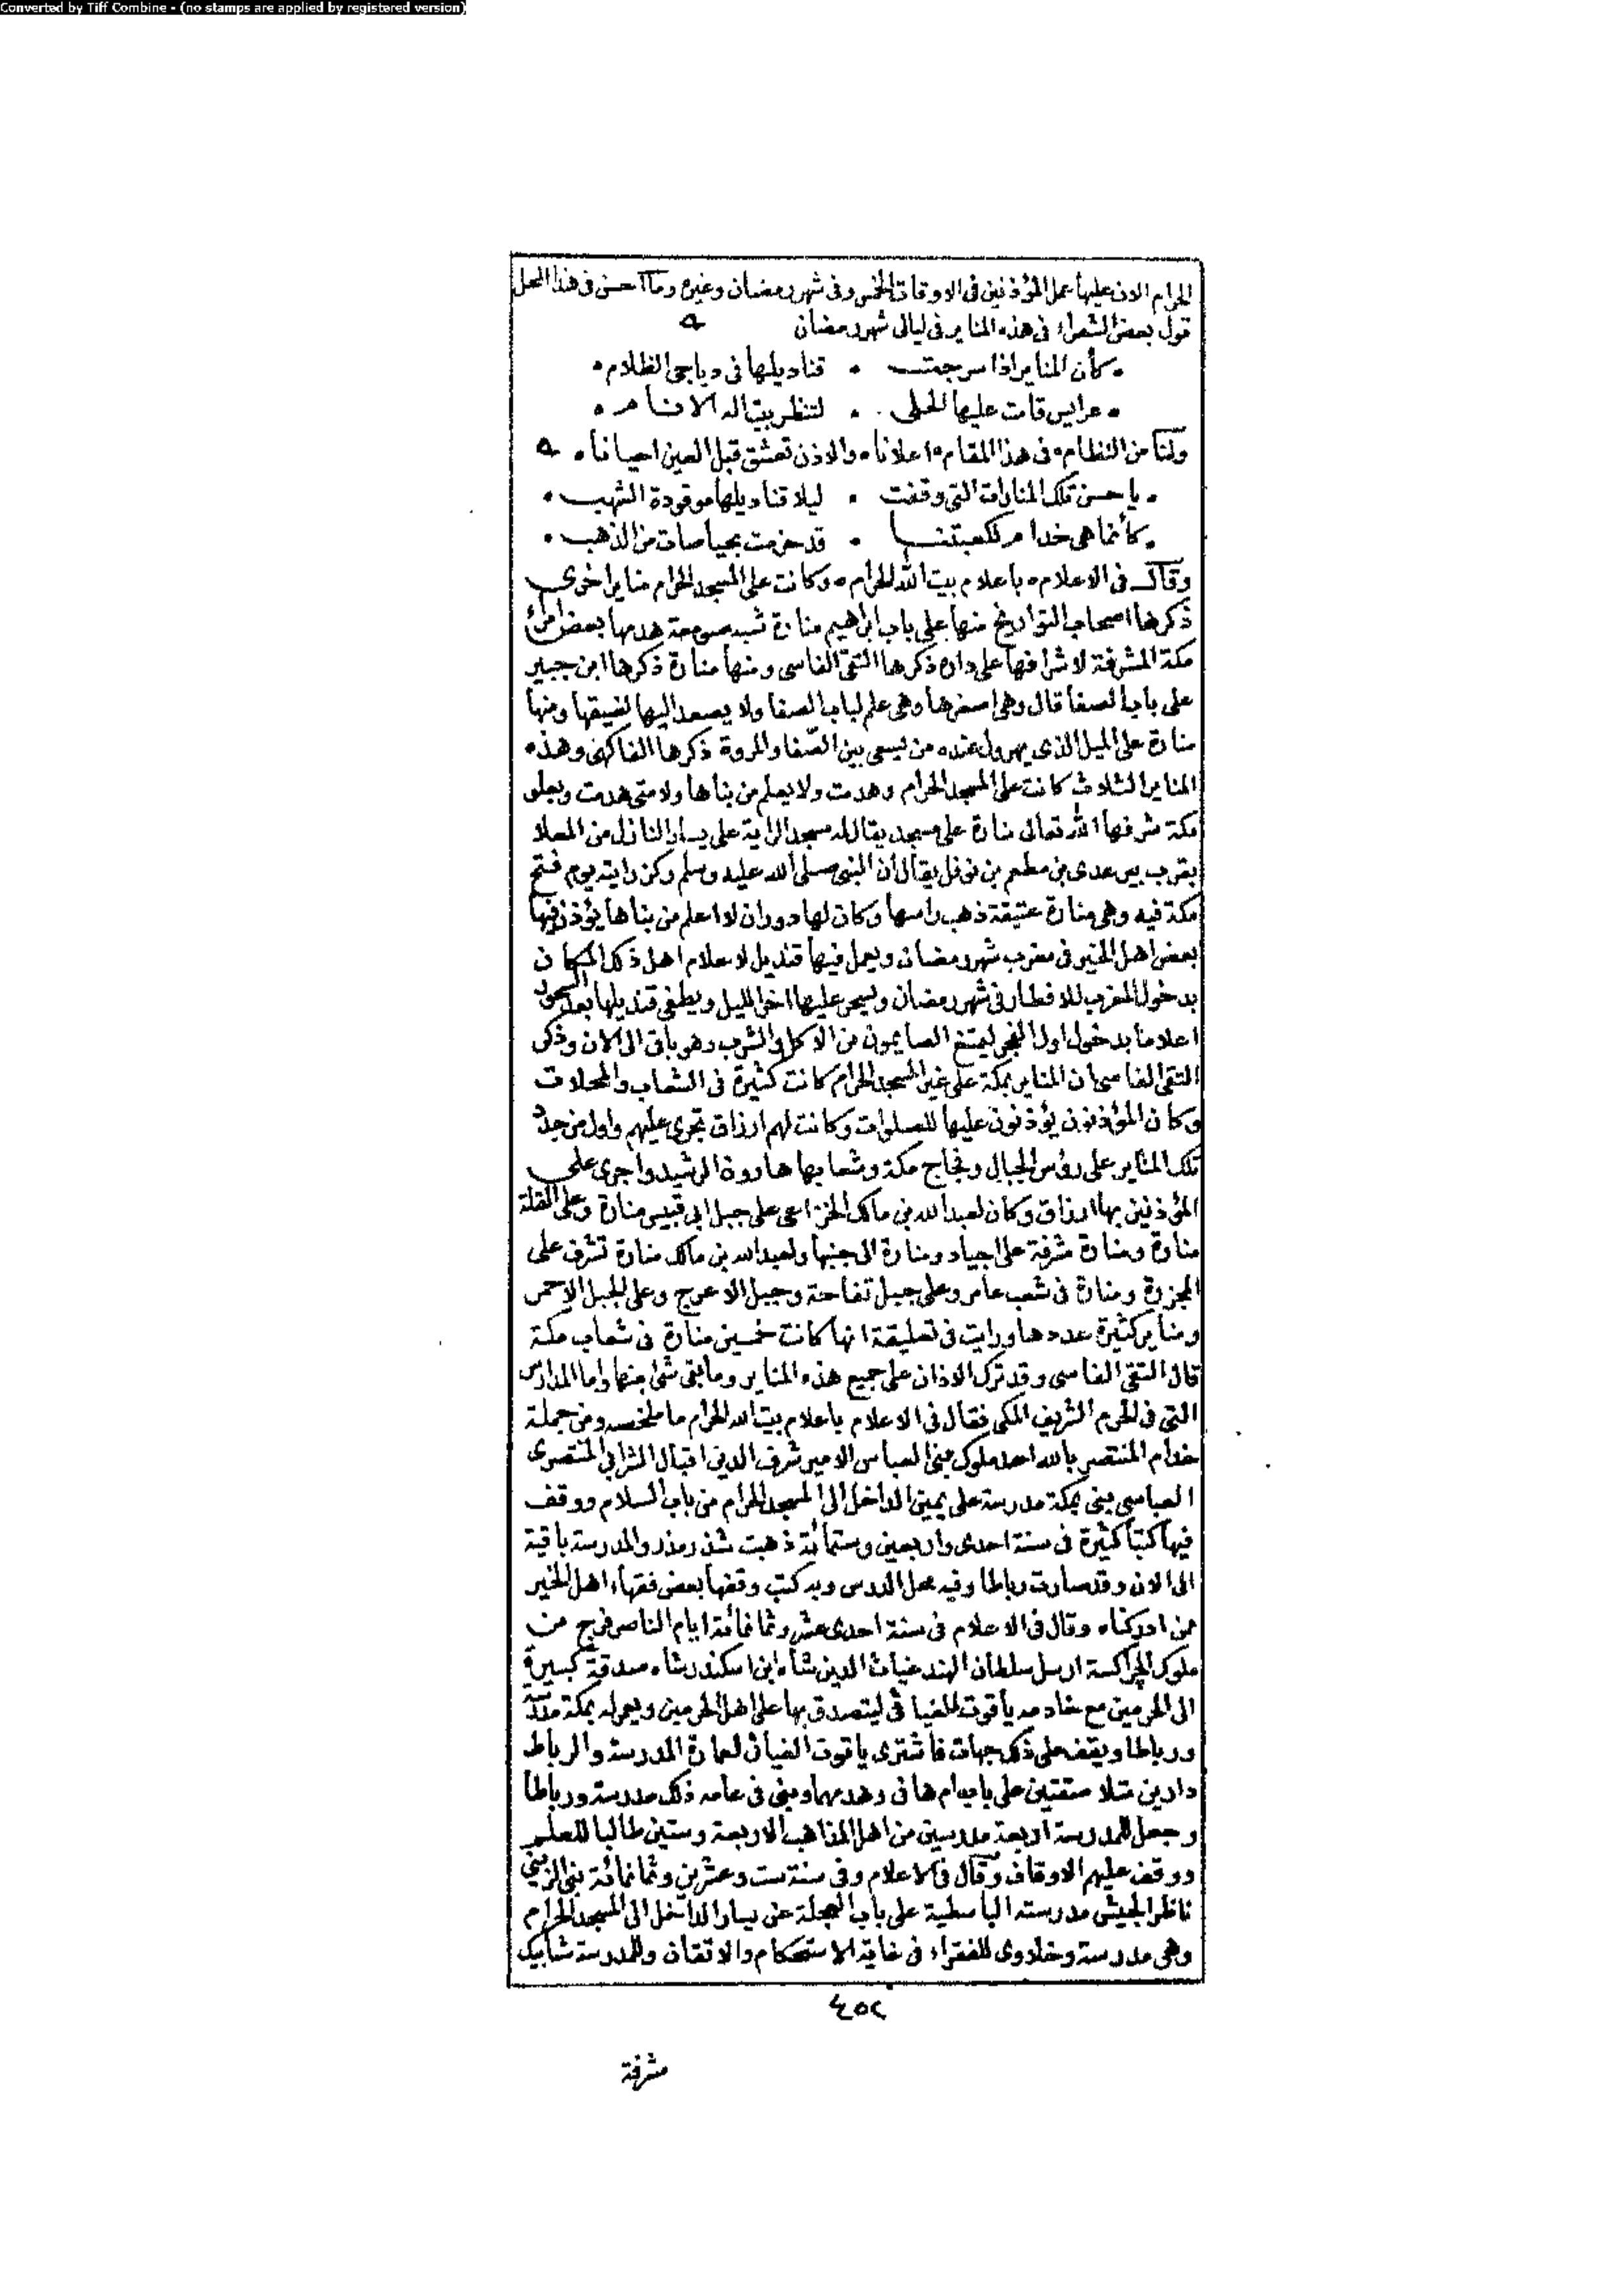 Converted by Tiff Combine - (no stamps are applied by registered version)
الحرام الان عليها عمل المؤذنين فى الاوقات الخمس وفى شهر رمضان وغيره وما احسن فى هذا المحل
قول بعض الشعراء فى هذه المناير فى ليالى شهر رمضان
كأن المناير اذا سرجت • قناديلها فى دياجى الظلام •
• عرايس قامت عليها الحلى • لتنظر بيت اله الانام •
ولنا من النظام • فى هذا المقام • اعلانا • والاذن تعشق قبل العين احيانا •
• يا حسن تلك المنارات التى وقفت • ليلا قناديلها موقودة الشهب •
• كأنما هى خدام لكعبتنا • قد حزمت بحياصات من الذهب •
وقال فى الاعلام • باعلام بيت الله الحرام • وكانت على المسجد الحرام مناير اخرى
ذكرها اصحاب التواريخ منها على باب ابراهيم منارة شبه صومعة هدمها بعض امراء
مكة المشرفة لاشرافها على داره ذكرها التقى الفاسى ومنها منارة ذكرها ابن جبير
على باب الصفا قال وهى اصغرها وهى علم لباب الصفا ولا يصعد اليها لضيقها ومنها
منارة على الميل الذى يهرول عنده من يسعى بين الصّفا والمروة ذكرها الفاكهى وهذه
المناير الثلاث كانت على المسجد الحرام وهدمت ولا يعلم من بناها ولا متى هدمت وبعلو
مكة شرفها الله تعالى منارة على مسجد يقال له مسجد الراية على يسار النازل من المعلا
بقرب بير عدى بن مطعم بن نوفل يقال ان النبى صلى الله عليه وسلم ركز رايته يوم فتح
مكة فيه وهى منارة عتيقة ذهب راسها وكان لها دوران لا اعلم من بناها يؤذن فيها
بعض اهل الخير فى مغرب شهر رمضان ويعمل فيها قنديل لاعلام اهل ذلك المكان
بدخول المغرب للافطار فى شهر رمضان ويسحر عليها اخر الليل ويطفى قنديلها بعد السحور
اعلاما بدخول اول الفجر ليمتنع الصايمون من الاكل والشرب وهو باق الى الان وذكر
التقى الفاسى ان المناير بمكة على غير المسجد الحرام كانت كثيرة فى الشعاب والمحلات
وكان المؤذنون يؤذنون عليها للصلوات وكانت لهم ارزاق تجرى عليهم واول من جدد
تلك المناير على رؤس الجبال وفجاج مكة وشعابها هارون الرشيد واجرى على
المؤذنين بها ارزاق وكان لعبد الله بن مالك الخزاعى على جبل ابى قبيس منارة وعلى القلة
منارة ومنارة مشرفة على اجياد ومنارة الى جنبها ولعبد الله بن مالك منارة تشرف على
المجزرة ومنارة فى شعب عامر وعلى جبل تفاحة وجبل الاعرج وعلى الجبل الاحمر
ومناير كثيرة عددها ورايت فى تعليقة انها كانت خمسين منارة فى شعاب مكة
قال التقى الفاسى وقد ترك الاذان على جميع هذه المناير وما بقى شئ منها واما المدارس
التى فى الحرم الشريف المكى فقال فى الاعلام باعلام بيت الله الحرام ما ملخصه ومن جملة
خدام المنتصر بالله احد ملوك بنى العباس الامير شرف الدين اقبال الشرابى المنتصرى
العباسى بنى بمكة مدرسة على يمين الداخل الى المسجد الحرام من باب السلام ووقف
فيها كتبا كثيرة فى سنة احدى واربعين وستمائة ذهبت شذر مذر والمدرسة باقية
الى الان وقد صارت رباطا وفيه محل الدرس وبه كتب وقفها بعض فقهاء اهل الخير
ممن ادركناه وقال فى الاعلام فى سنة احدى عشر وثمانمائة ايام الناصر فرج من
ملوك الچراكسة ارسل سلطان الهند غياث الدين شاه ابن اسكندر شاه صدقة كبيرة
الى الحرمين مع خادمه ياقوت الغياثى ليتصدق بها على اهل الحرمين ويعمر له بمكة مدرسة
ورباطا ويقف على ذلك جهات فاشترى ياقوت الغياثى لعمارة المدرسة والرباط
دارين متلاصقتين على باب ام هانى وهدمهما وبنى فى عامه ذلك مدرسة ورباطا
وجعل للمدرسة اربعة مدرسين من اهل المذاهب الاربعة وستين طالبا للعلم
ووقف عليهم الاوقاف وقال فى الاعلام وفى سنة ست وعشرين وثمانمائة بنى الزينى
ناظر الجيش مدرسته الباسطية على باب العجلة عن يسار الداخل الى المسجد الحرام
وهى مدرسة وخلاوى للفقراء فى غاية الاستحكام والاتقان وللمدرسة شبابيك
٤٥٢
مشرفة